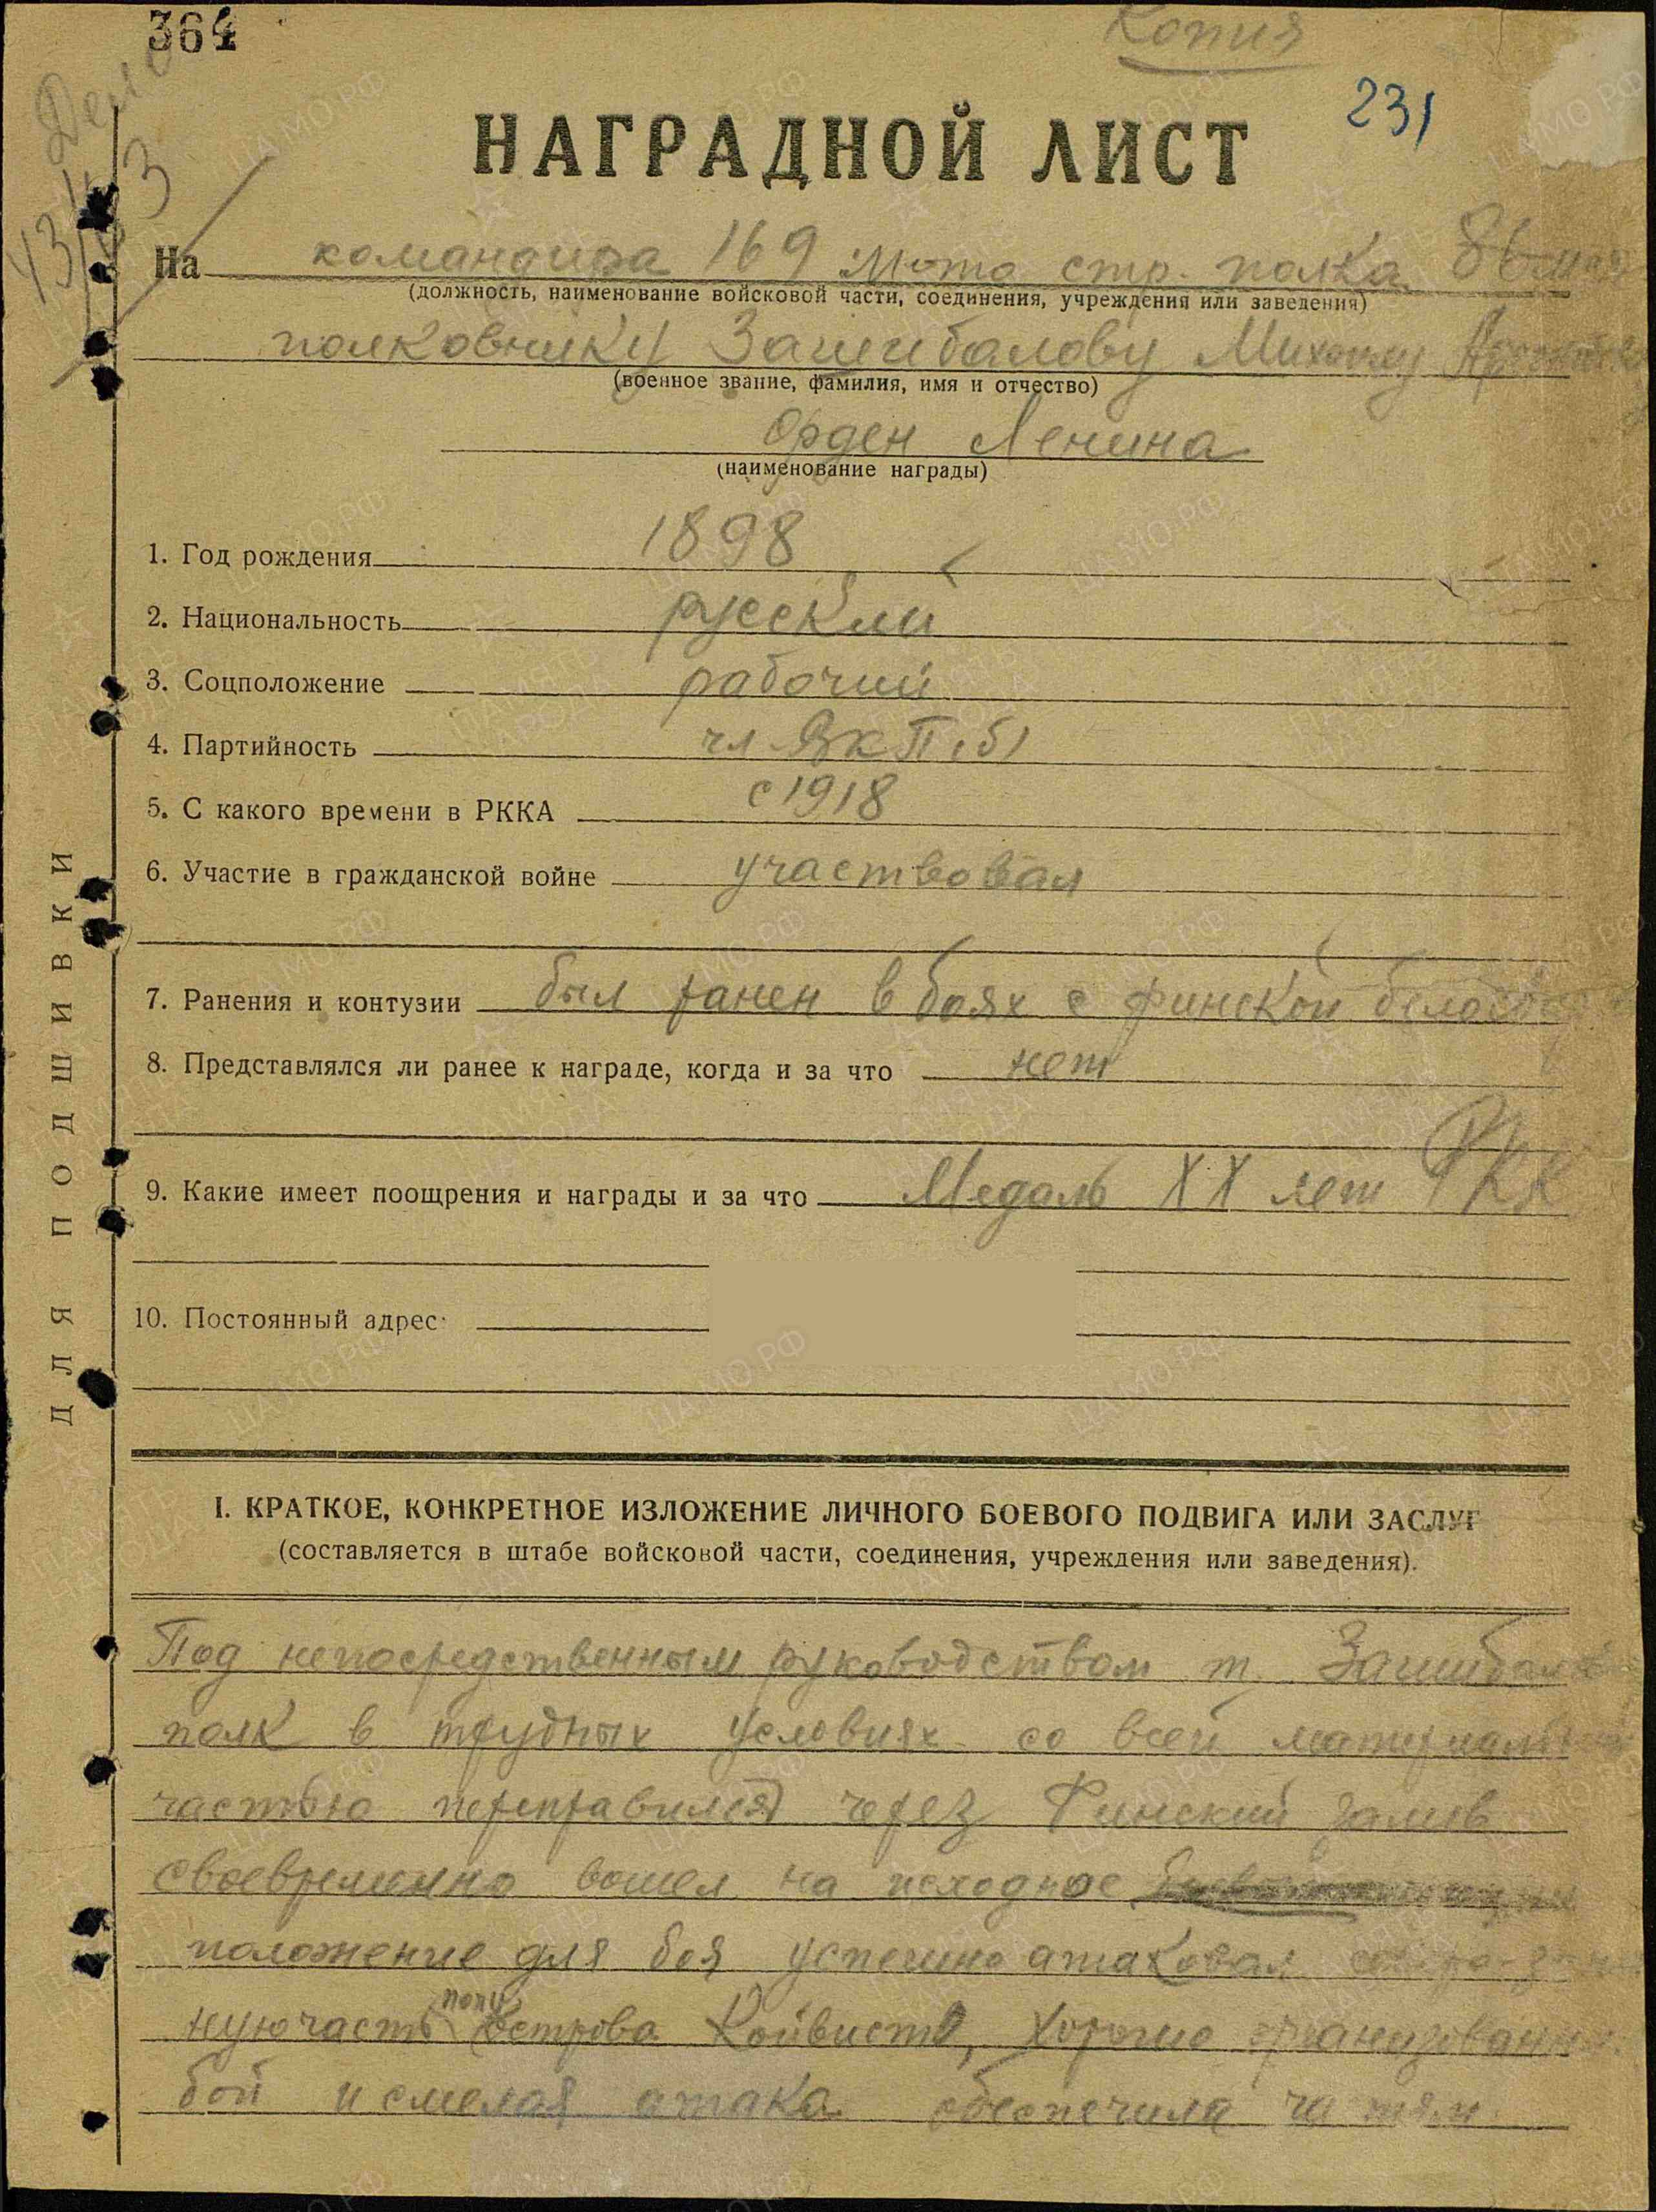 364
Копия
231
НАГРАДНОЙ ЛИСТ
На командира 169 Мото стр. полка 86
(должность, наименование войсковой части, соединения, учреждения или заведения)
полковнику Зашибалову Михаилу
(военное звание, фамилия, имя и отчество)
Орден Ленина
(наименование награды)
1. Год рождения 1898
2. Национальность русский
3. Соцположение рабочий
4. Партийность чл ВКП(б)
5. С какого времени в РККА с 1918
6. Участие в гражданской войне участвовал
7. Ранения и контузии был ранен в боях с финской
8. Представлялся ли ранее к награде, когда и за что нет
9. Какие имеет поощрения и награды и за что Медаль ХХ лет РКК
10. Постоянный адрес
ДЛЯ ПОДШИВКИ
I. КРАТКОЕ, КОНКРЕТНОЕ ИЗЛОЖЕНИЕ ЛИЧНОГО БОЕВОГО ПОДВИГА ИЛИ ЗАСЛУГ
(составляется в штабе войсковой части, соединения, учреждения или заведения).
Под непосредственным руководством т.
полк в трудных условиях со всей
частью переправился через Финский залив
своевременно вошел на исходное
положение для боя успешно атаковал
ную часть полуострова Койвисто, хорошо
бой и смелая атака обеспечила